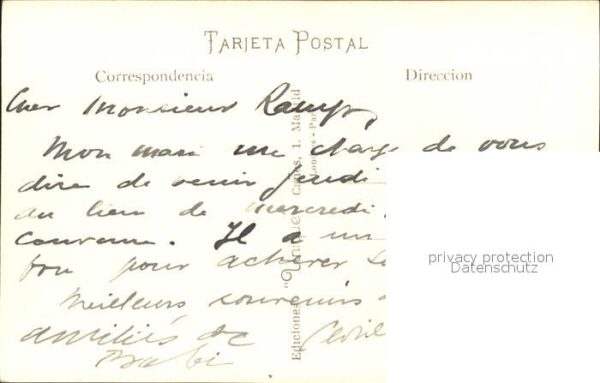 TARJETA POSTAL
Correspondencia
Direccion
Cher Monsieur
Mon mari me charge de vous
dire de venir jeudi
au lieu de mercredi
Il a un
pour achever
Meilleurs souvenirs
amitiés de
Ediciones "Unique" 1. Madrid
privacy protection
Datenschutz